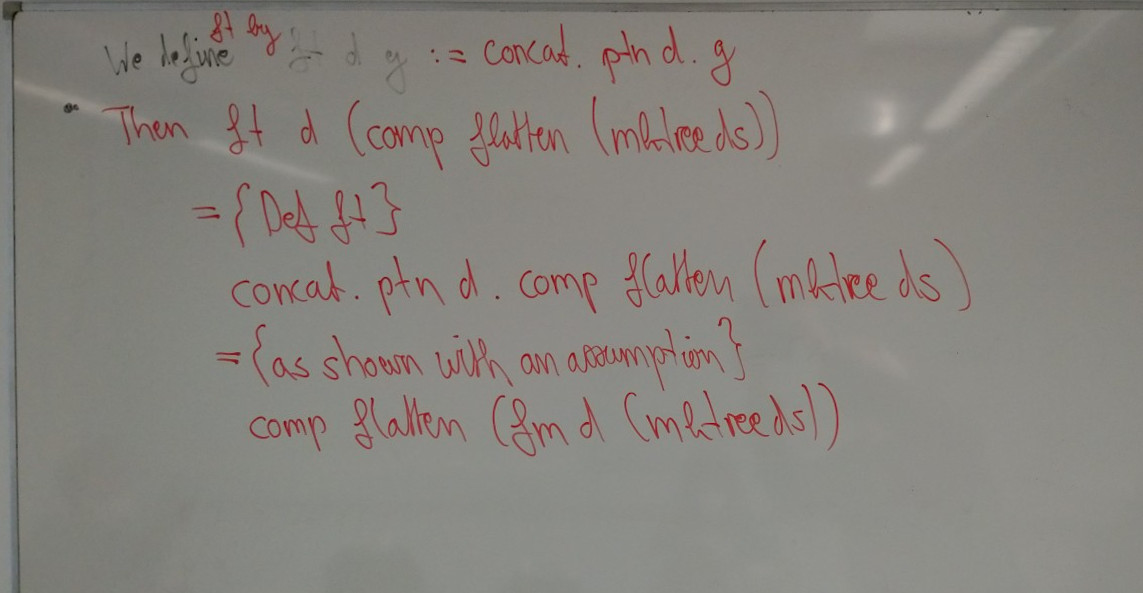 We define ft by ft d g := concat. ptn d. g
Then ft d (comp flatten (mktree ds))
= {Def ft}
concat. ptn d. comp flatten (mktree ds)
= {as shown with an assumption}
comp flatten (fm d (mktree ds))